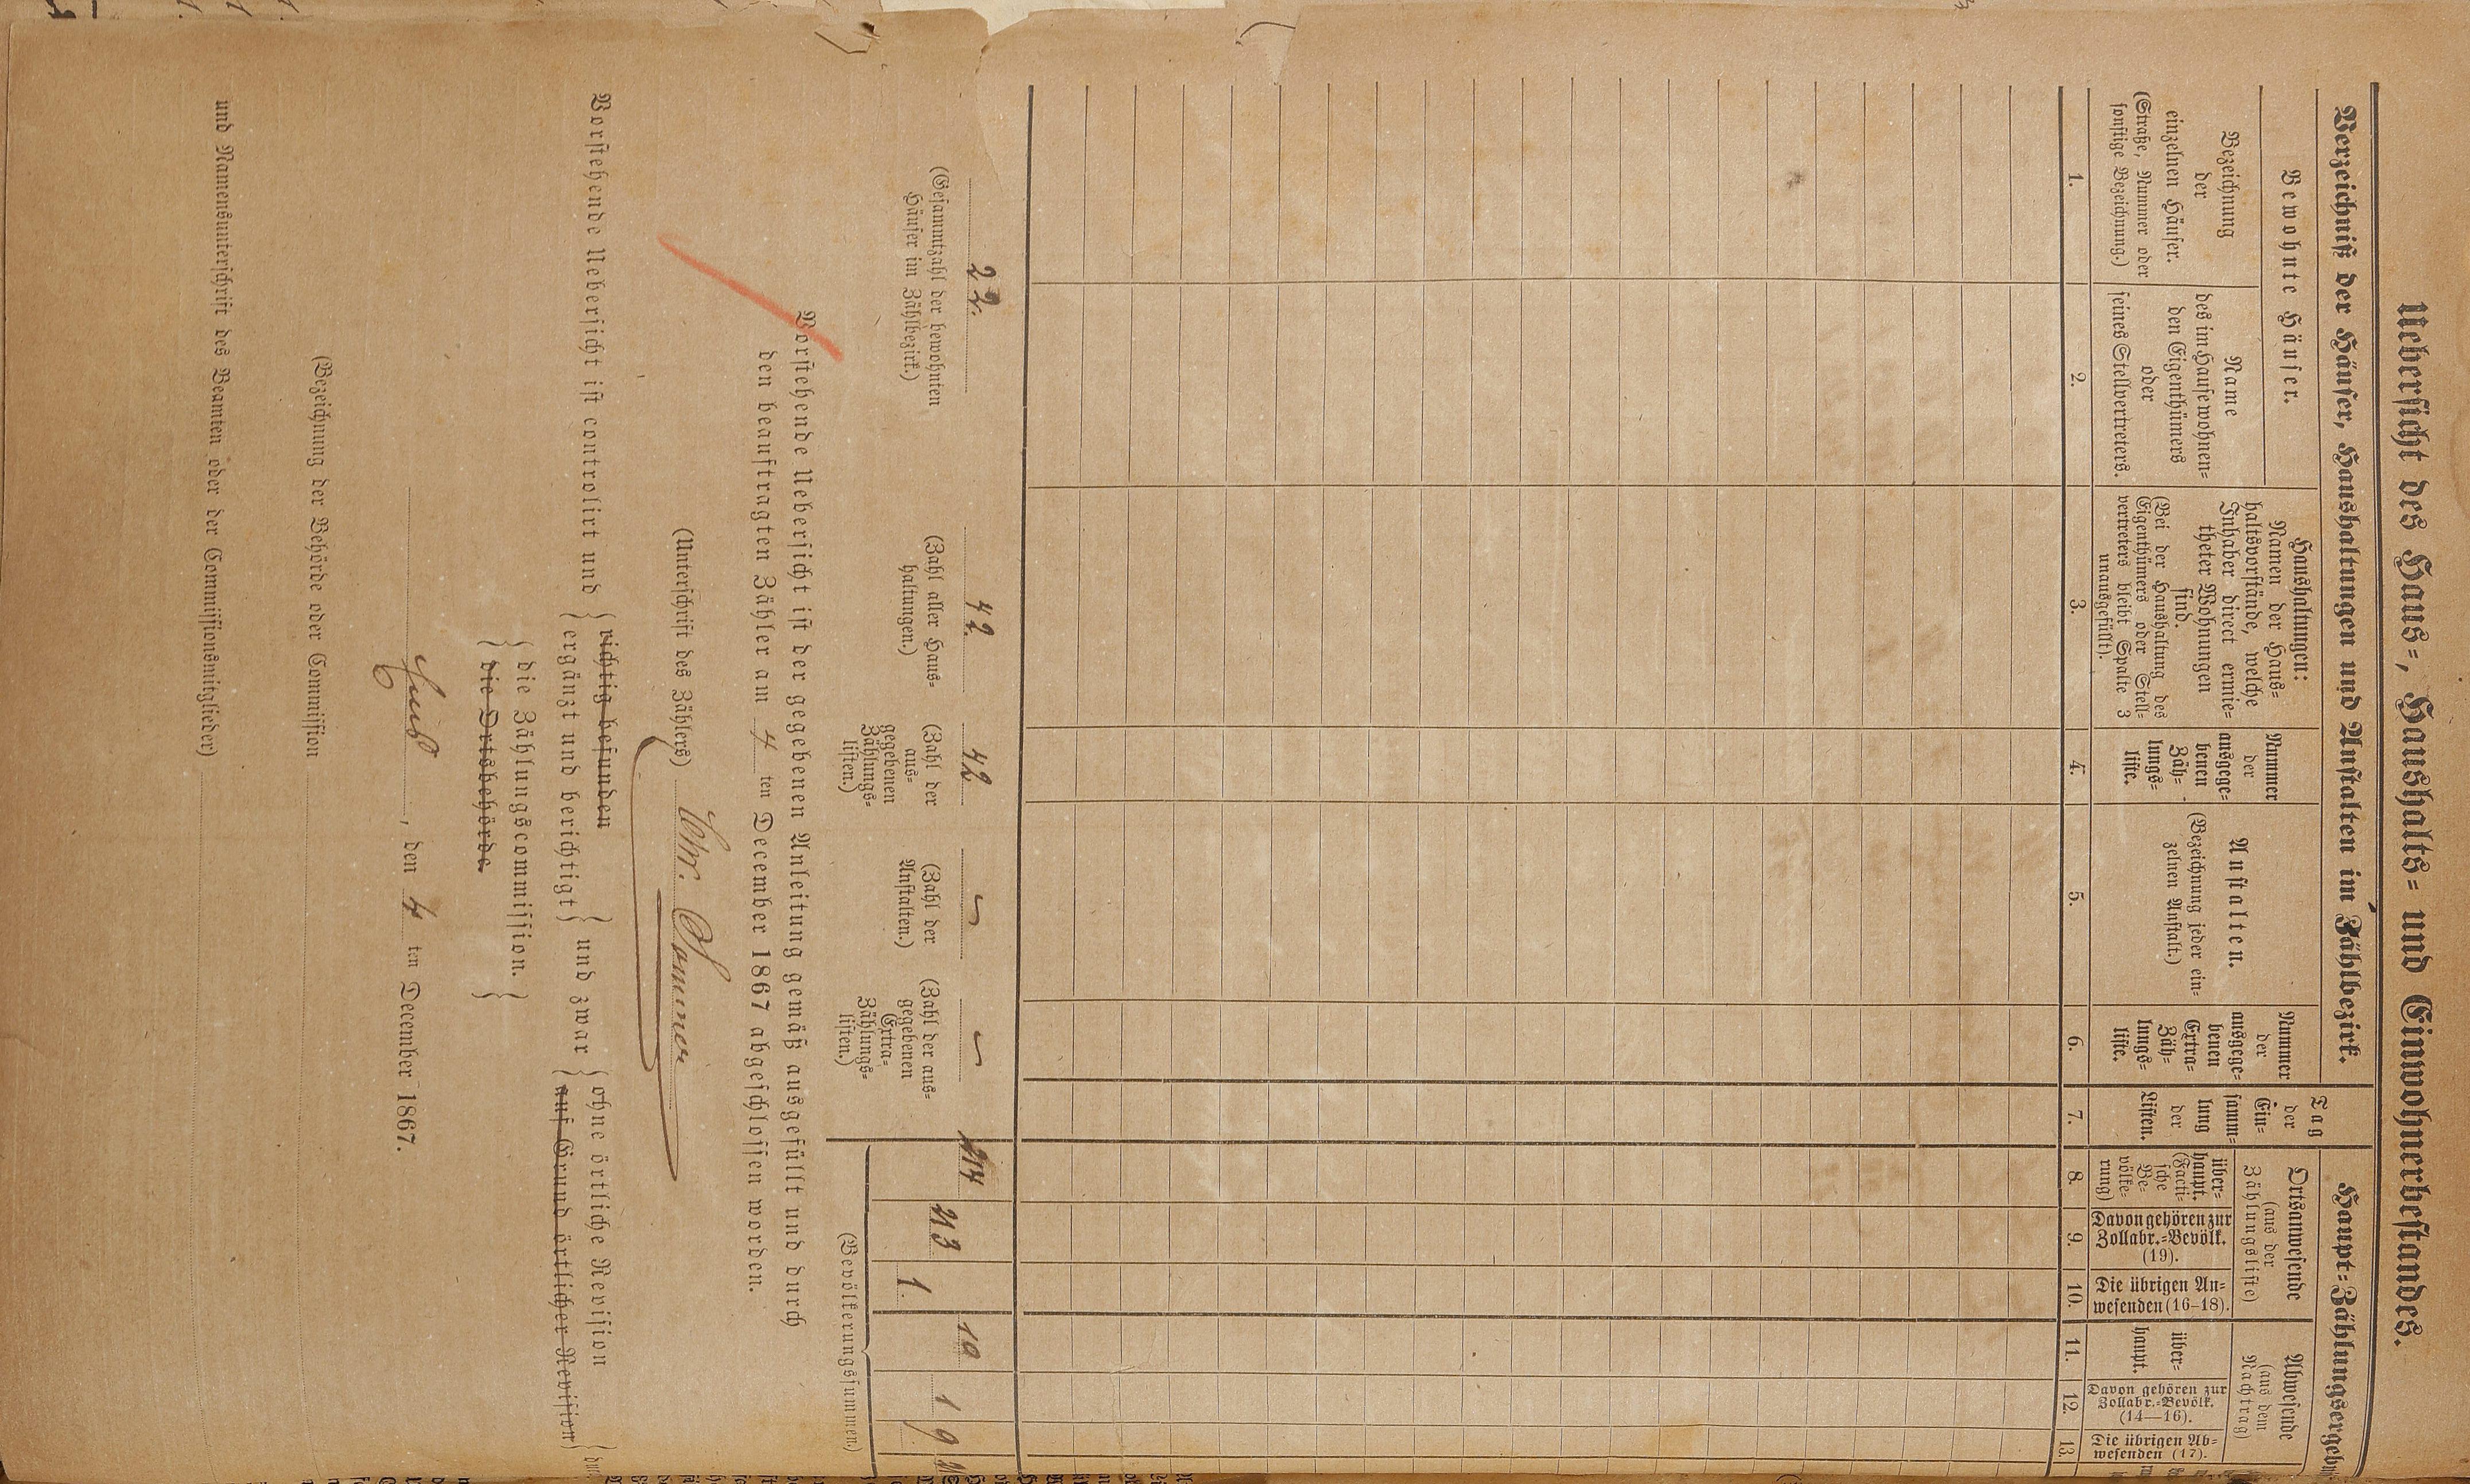 Uebersicht des Haus-, Haushalts- und Einwohnerbestandes.
Verzeichniß der Häuser, Haushaltungen und Anstalten im Zählbezirk.
Haupt-Zählungsergeb
Bewohnte Häuser.
Bezeichnung
der
einzelnen Häuser.
(Straße, Nummer oder
sonstige Bezeichnung.)
Name
des im Hause wohnen-
den Eigenthümers
oder
seines Stellvertreters.
Haushaltungen:
Namen der Haus-
haltsvorstände, welche
Inhaber direct ermie-
theter Wohnungen
sind.
(Bei der Haushaltung des
Eigenthümers oder Stell-
vertreters bleibt Spalte 3
unausgefüllt).
Nummer
der
ausgege-
benen
Zäh-
lungs-
liste.
Anstalten.
(Bezeichnung jeder ein-
zelnen Anstalt.)
Nummer
der
ausgege-
benen
Extra-
Zäh-
lungs-
liste.
Tag
der
Ein-
samm-
lung
der
Listen.
Ortsanwesende
(aus der
Zählungsliste)
über-
haupt.
(Facti-
sche
Be-
völke-
rung)
Davon gehören zur
Zollabr.-Bevölk.
(19).
Die übrigen An-
wesenden (16–18).
Abwesende
(aus dem
Nachtrag)
über-
haupt.
Davon gehören zur
Zollabr.-Bevölk.
(14—16).
Die übrigen Ab-
wesenden (17).
1. 2. 3. 4. 5. 6. 7. 8. 9. 10. 11. 12. 13.
22. 42. 42 214 213 1. 10 1 9
(Gesammtzahl der bewohnten
Häuser im Zählbezirk.)
(Zahl aller Haus-
haltungen.)
(Zahl der
aus-
gegebenen
Zählungs-
listen.)
(Zahl der
Anstalten.)
(Zahl der aus-
gegebenen
Extra-
Zählungs-
listen.)
(Bevölkerungssummen.)
Vorstehende Uebersicht ist der gegebenen Anleitung gemäß ausgefüllt und durch
den beauftragten Zähler am 4 ten December 1867 abgeschlossen worden.
(Unterschrift des Zählers) Chr. Sommer
Vorstehende Uebersicht ist controlirt und { richtig befunden
ergänzt und berichtigt } und zwar { ohne örtliche Revision
auf Grund örtlicher Revision }
{ die Zählungscommission.
{ die Ortsbehörde. }
, den 4 ten December 1867.
(Bezeichnung der Behörde oder Commission
und Namensunterschrift des Beamten oder der Commissionsmitglieder)